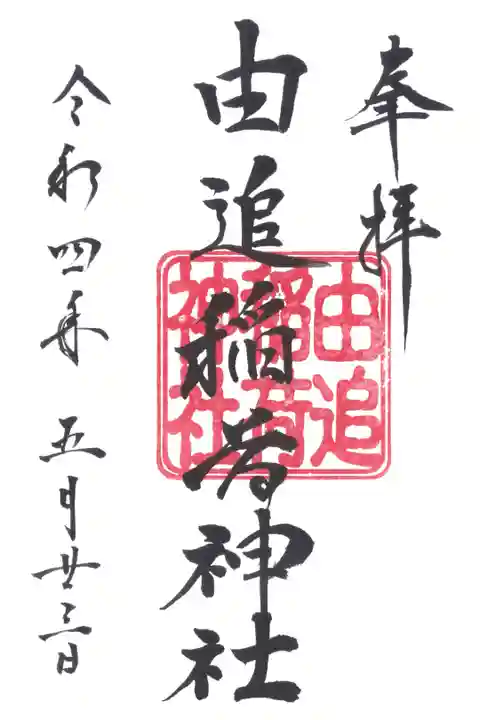 奉拝
由追稲荷神社
由追稲荷神社
令和四年五月廿三日